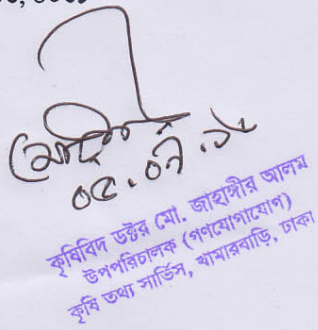 ০৫.০৭.১৮
কৃষিবিদ ডক্টর মো. জাহাঙ্গীর আলম
উপপরিচালক (গণযোগাযোগ)
কৃষি তথ্য সার্ভিস, খামারবাড়ি, ঢাকা